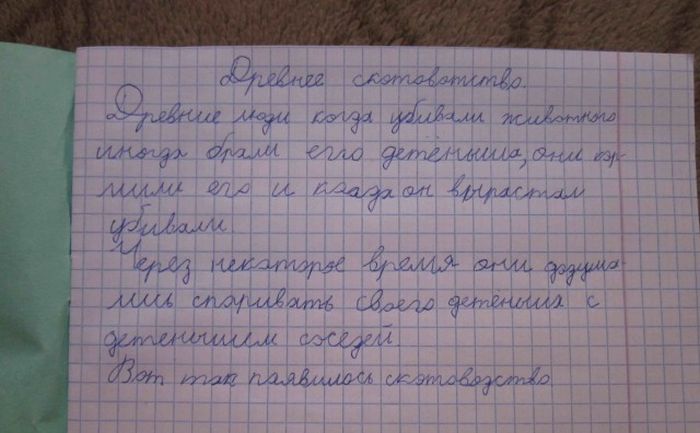 Древнее скотоводство.
Древние люди когда убивали животного
иногда брали егго детёныша, они кор-
мили его и когда он вырастал
убивали.
Через некоторое время они додума-
лись спаривать своего детёныша с
детенышем соседей.
Вот так паявилось скотоводство